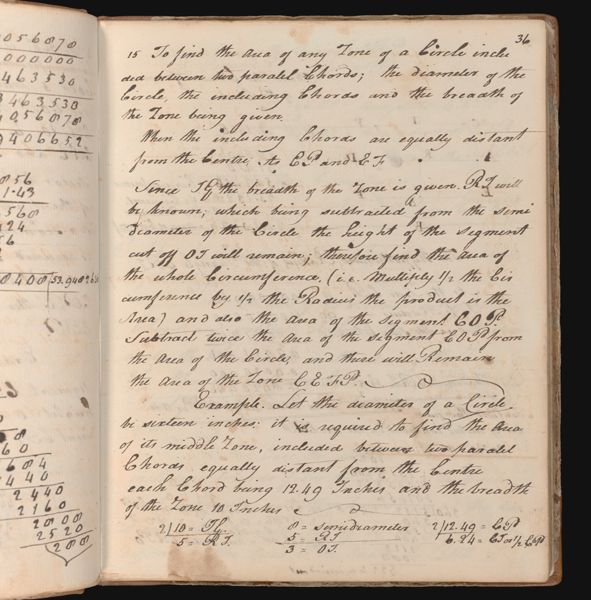 056870
000000
463530
3463530
4056870
9406652
856
1.43
568
424
56
8
8408 53.948
60
684
440
2440
2160
2808
2520
288
36
15 To find the Area of any Zone of a Circle inclu
ded between two paralel Chords; the diameter of the
Circle, the including Chords and the breadth of
the Zone being given.
When the including Chords are equally distant
from the Centre, As CP and EF
Since TG the breadth of the Zone is given. RT will
be known; which being subtracted from the semi
diameter of the Circle the height of the segment
cut off OT will remain; therefore find the area of
the whole Circumference, (i.e. Multiply 1/2 the Cir
cumference by 1/2 the Radius the product is the
Area) and also the area of the segment COP.
Subtract twice the Area of the segment COP from
the Area of the Circle, and there will Remain
the area of the Zone CEFP.
Example. Let the diameter of a Circle
be sixteen inches: it is required to find the Area
of its middle Zone, included between two paralel
Chords equally distant from the Centre
each Chord being 12.49 Inches and the breadth
of the Zone 10 Inches
2/10 = TG 8 = semidiameter 2/12.49 = CP
5 = RT. 5 = RT 6.24 = CT or 1/2 CP
3 = OT.